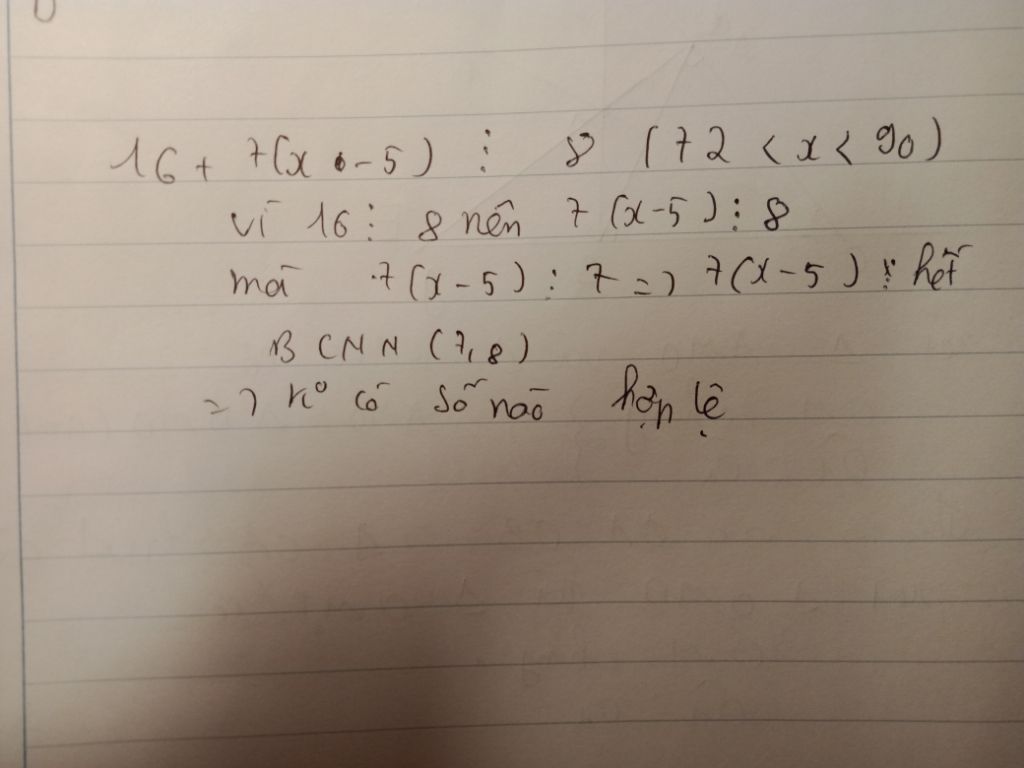 16 + 7(x - 5) ⋮ 8 (72 < x < 90)
vì 16 ⋮ 8 nên 7 (x-5) ⋮ 8
mà 7(x-5) ⋮ 7 => 7(x-5) ⋮ hết
BCNN (7,8)
=> ko có số nào hợp lệ